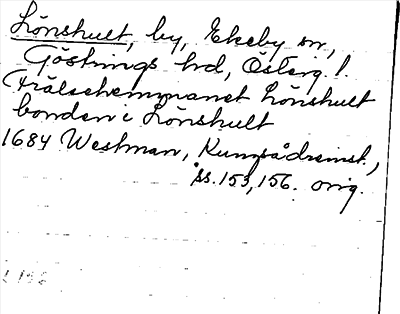 Lönshult, by, Ekeby sn,
Göstrings hd, Österg. l.
Frälsehemmanet Lönshult
bonden i Lönshult
1684 Westman, Kungsådreinst.,
ss. 153, 156. orig.